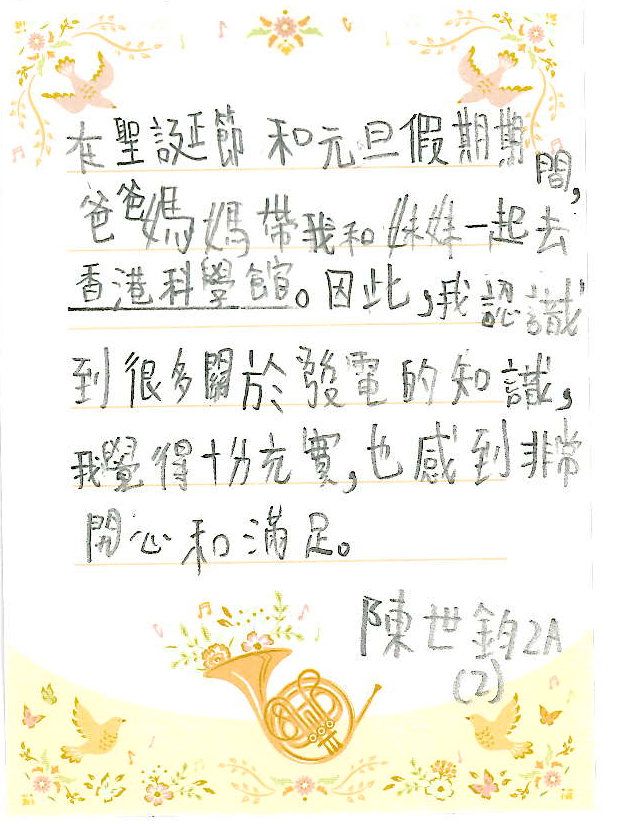 在聖誕節和元旦假期期間,
爸爸媽媽帶我和妹妹一起去
香港科學館。因此,我認識
到很多關於發電的知識,
我覺得十分充實,也感到非常
開心和滿足。
陳世鈞2A
(2)